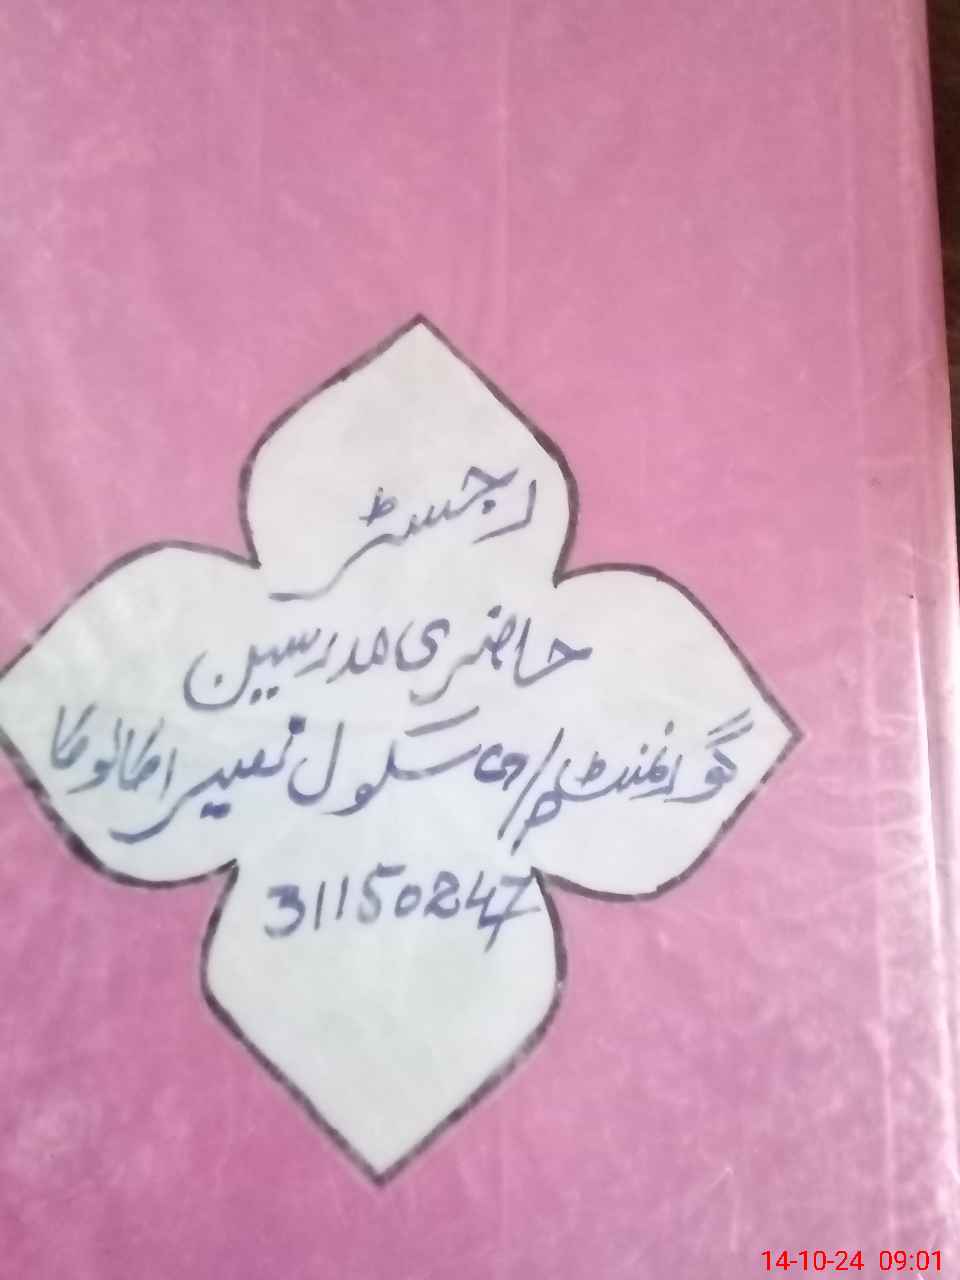 رجسٹر
حاضری مدرسین
گورنمنٹ پی سکول نصیرا کا
31150247
14-10-24 09:01